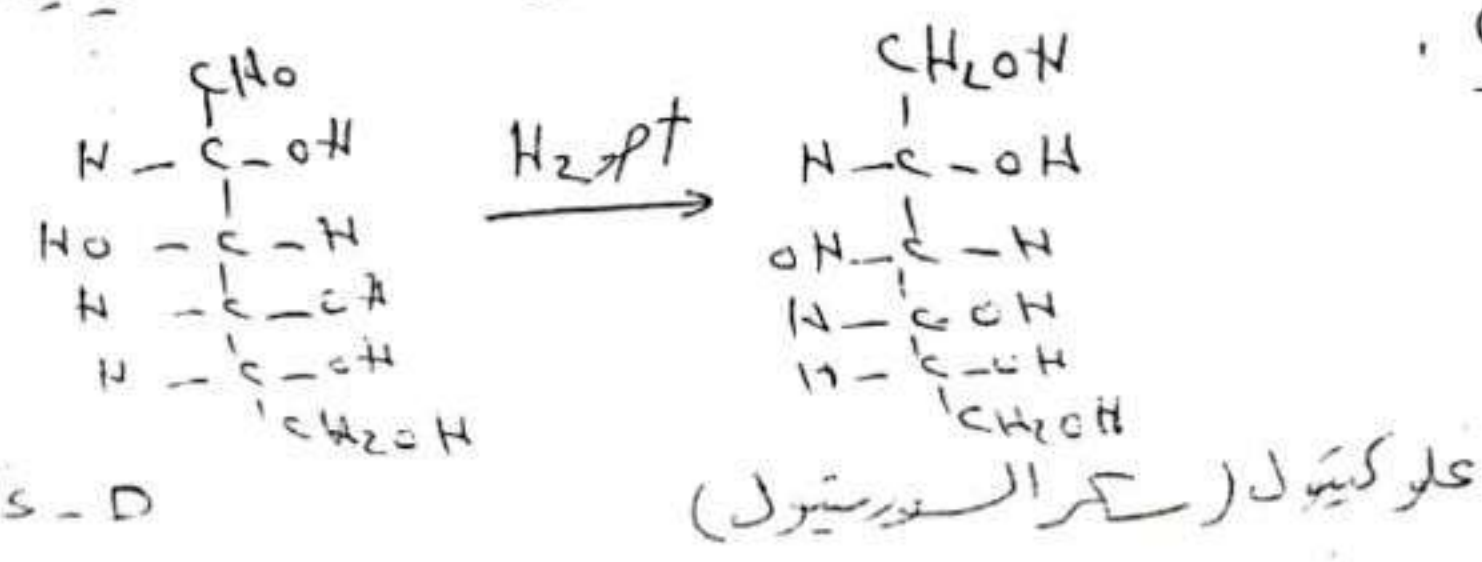 CHO
H - C - OH
HO - C - H
H - C - OH
H - C - OH
CH2OH
H2, Pt
CH2OH
H - C - OH
OH - C - H
H - C - OH
H - C - OH
CH2OH
غلوكيتول (سكر السوربيتول)
S - D